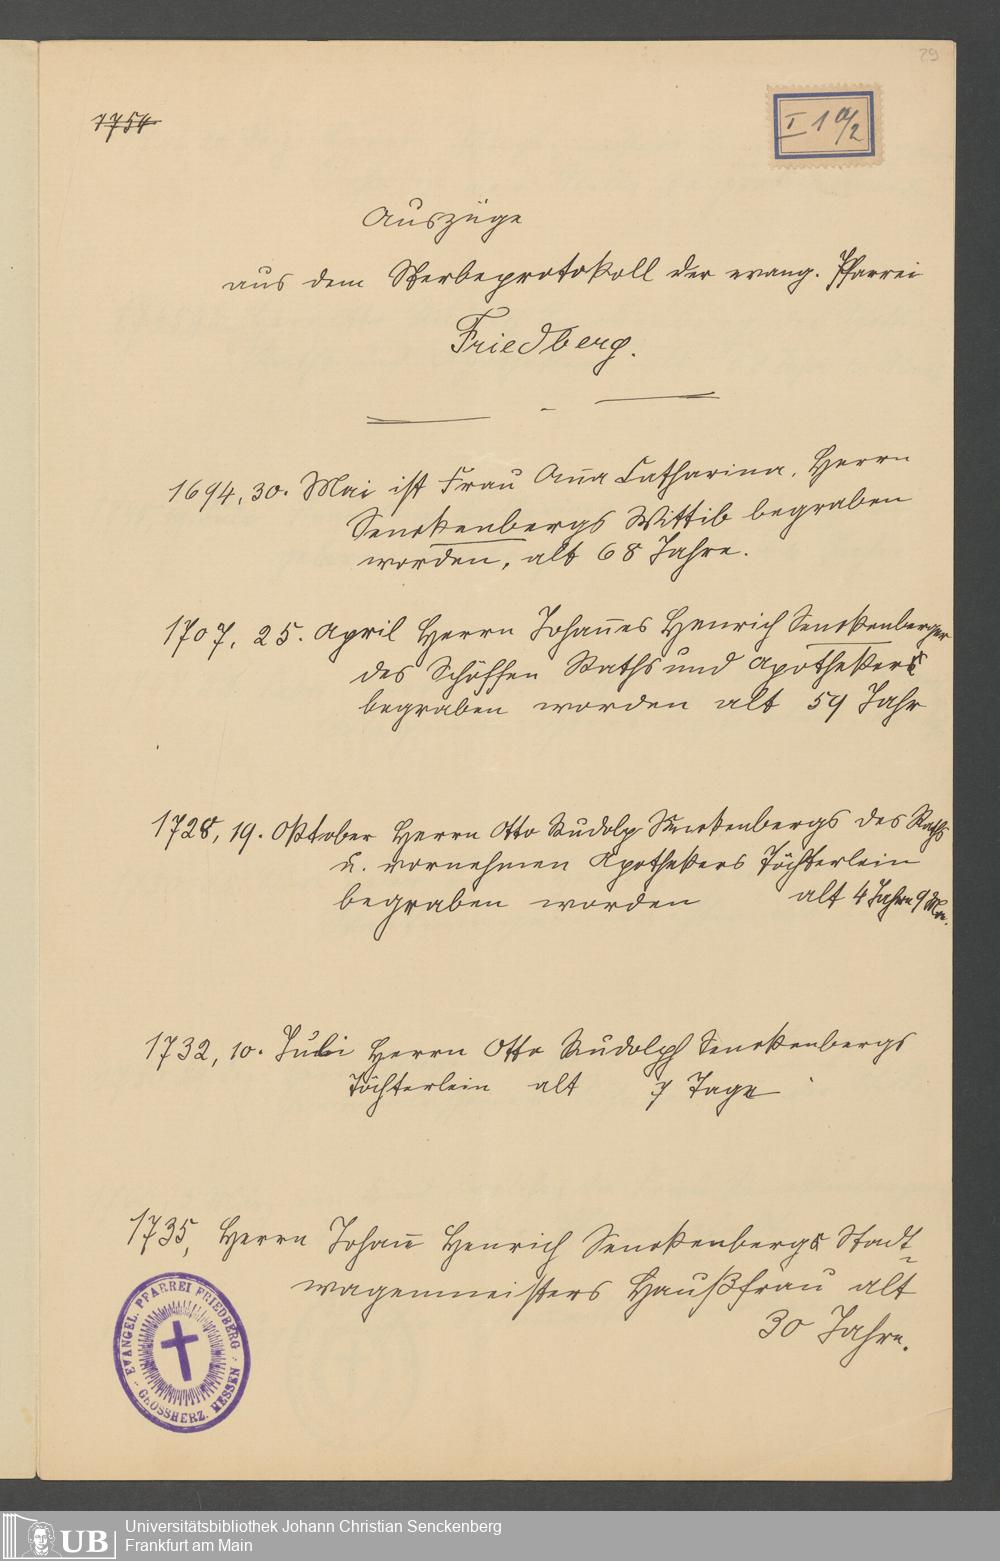 29
1754
I 1 a/2
Auszüge
aus dem Sterbeprotokoll der evang. Pfarrei
Friedberg.
1694, 30. Mai ist Frau An̄a Catharina, Herrn
Senckenbergs Wittib begraben
worden, alt 68 Jahre.
1707, 25. April Herrn Johan̄es Henrich Senckenberger
des Schöffen Raths und Apothekers
begraben worden alt 59 Jahr
1728, 19. Oktober Herrn Otto Rudolp Senckenbergs des Raths
u. vornehmen Apothekers Töchterlein
begraben worden alt 4 Jahre 9 Mon.
1732, 10. Juli Herrn Otto Rudolph Senckenbergs
Töchterlein alt 7 Tage
1735, Herrn Johan̄ Henrich Senckenbergs Stadt-
wagenmeisters Haußfrau alt
30 Jahre.
EVANGEL. PFARREI FRIEDBERG
GROSSHERZ. HESSEN
UB
Universitätsbibliothek Johann Christian Senckenberg
Frankfurt am Main